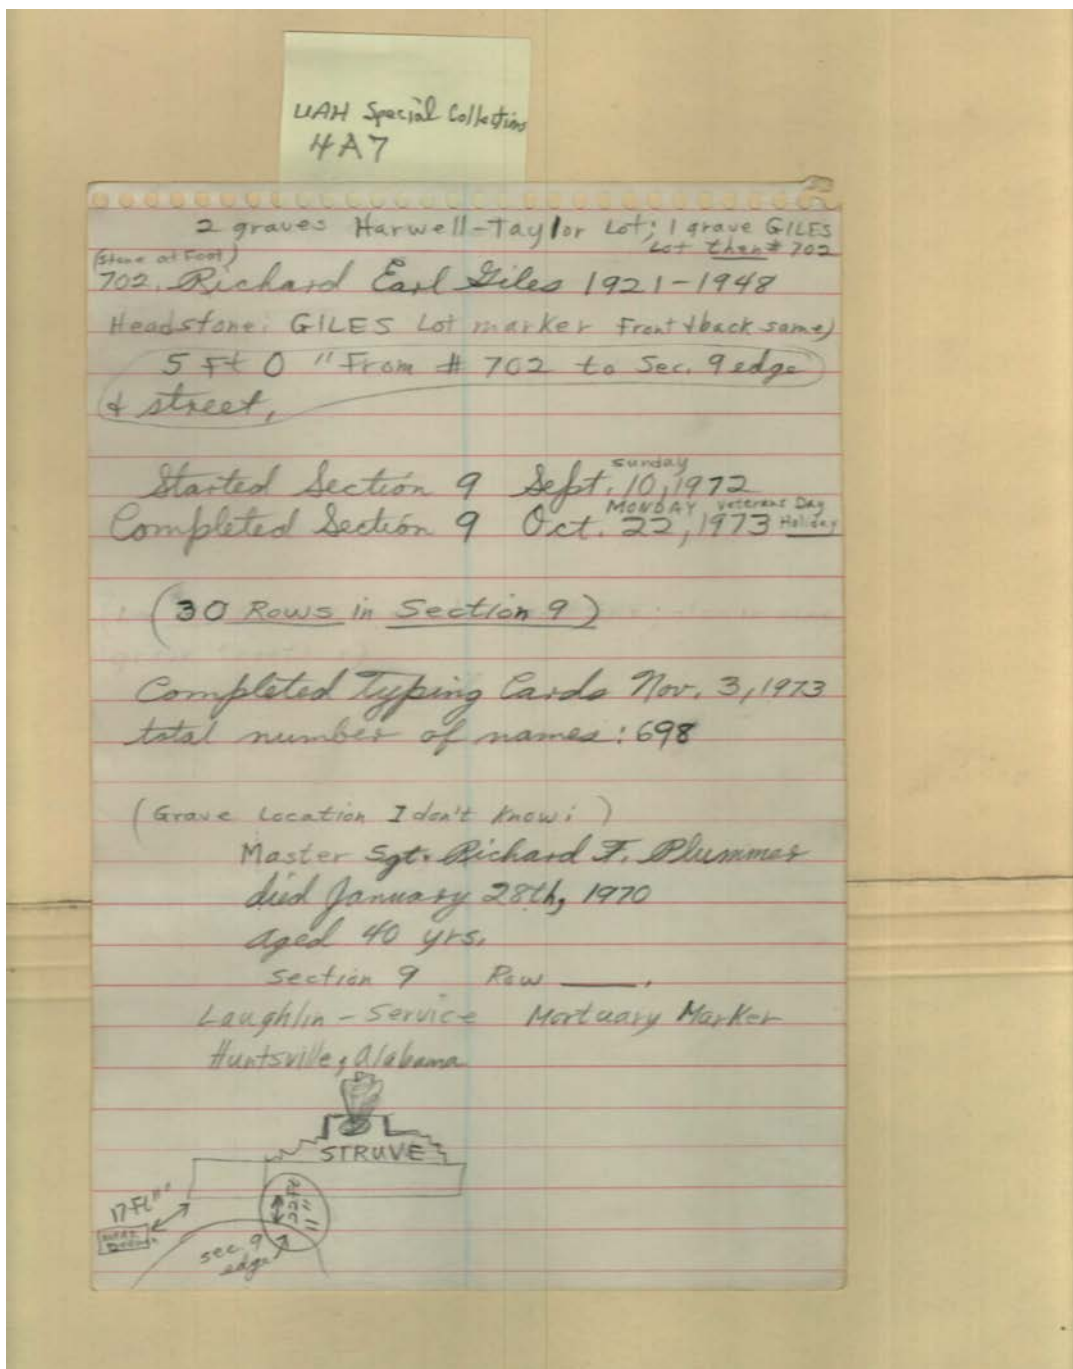 UAH Special Collections
4A7
2 graves Harwell-Taylor Lot; 1 grave GILES
Lot then # 702
(Stone at Foot)
702. Richard Earl Giles 1921-1948
Headstone: GILES Lot marker Front & back same)
5 Ft 0 " From # 702 to Sec. 9 edge
& street,
Sunday
Started Section 9 Sept. 10, 1972
MONDAY Veterans Day
Completed Section 9 Oct. 22, 1973 Holiday
(30 Rows in Section 9)
Completed Typing Cards Nov. 3, 1973
total number of names: 698
(Grave Location I don't Know: )
Master Sgt. Richard F. Plummer
died January 28th, 1970
aged 40 yrs.
Section 9 Row ____.
Laughlin-Service Mortuary Marker
Huntsville, Alabama
STRUVE
17 Ft
22 Ft
11"
sec. 9
edge